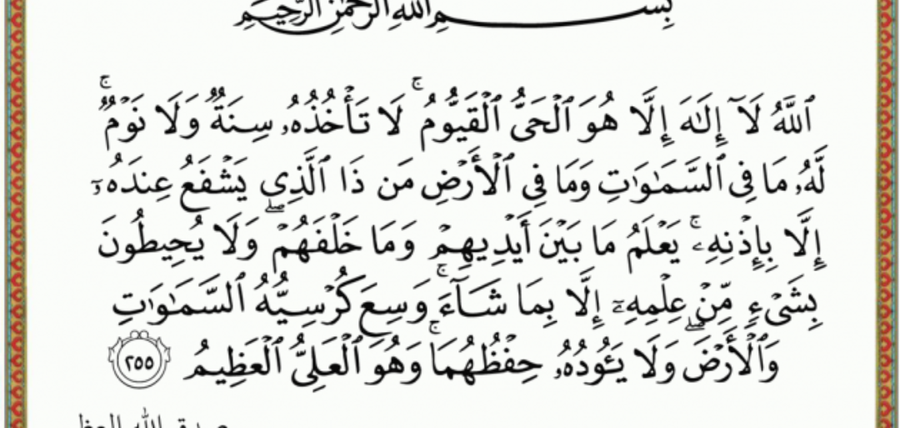 بِسْمِ اللَّهِ الرَّحْمَٰنِ الرَّحِيمِ
ٱللَّهُ لَآ إِلَٰهَ إِلَّا هُوَ ٱلْحَىُّ ٱلْقَيُّومُ ۚ لَا تَأْخُذُهُۥ سِنَةٌ وَلَا نَوْمٌ ۚ
لَّهُۥ مَا فِى ٱلسَّمَٰوَٰتِ وَمَا فِى ٱلْأَرْضِ مَن ذَا ٱلَّذِى يَشْفَعُ عِندَهُۥٓ
إِلَّا بِإِذْنِهِۦ ۚ يَعْلَمُ مَا بَيْنَ أَيْدِيهِمْ وَمَا خَلْفَهُمْ ۖ وَلَا يُحِيطُونَ
بِشَىْءٍ مِّنْ عِلْمِهِۦٓ إِلَّا بِمَا شَآءَ ۚ وَسِعَ كُرْسِيُّهُ ٱلسَّمَٰوَٰتِ
وَٱلْأَرْضَ ۖ وَلَا يَـُٔودُهُۥ حِفْظُهُمَا ۚ وَهُوَ ٱلْعَلِىُّ ٱلْعَظِيمُ ٢٥٥